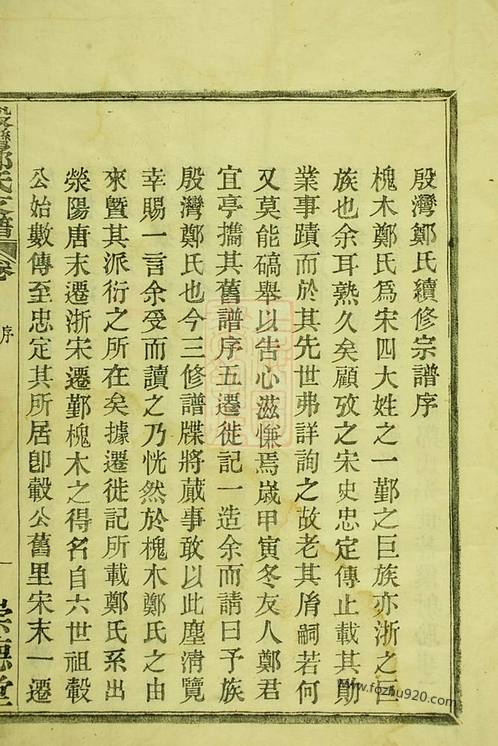 殷灣鄭氏續修宗譜序
槐木鄭氏爲宋四大姓之一鄞之巨族亦浙之巨
族也余耳熟久矣顧攷之宋史忠定傳止載其勛
業事蹟而於其先世弗詳詢之故老其胤嗣若何
又莫能碻舉以告心滋慊焉歲甲寅冬友人鄭君
宜亭攜其舊譜序五遷徙記一造余而請曰予族
殷灣鄭氏也今三修譜牒將蕆事敢以此塵清覽
幸賜一言余受而讀之乃恍然於槐木鄭氏之由
來曁其派衍之所在矣據遷徙記所載鄭氏系出
滎陽唐末遷浙宋遷鄞槐木之得名自六世祖轂
公始數傳至忠定其所居卽轂公舊里宋末一遷
鄭氏宗譜 卷
序
一
崇德堂
www.fozhu920.com